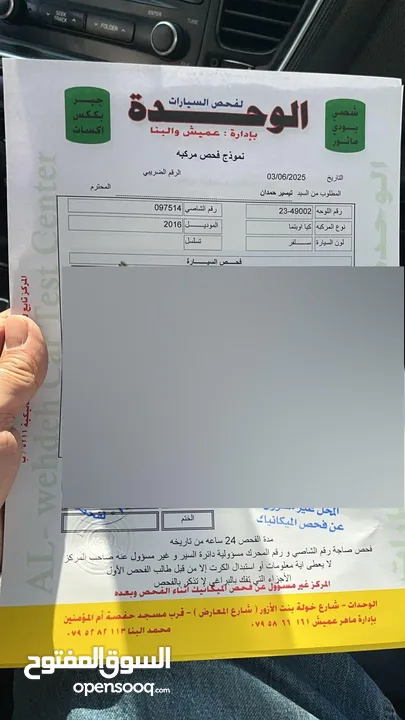 SEEK TRACK
FOLDER
TUNE
شصي
بودي
ماتور
لفحص السيارات
الوحدة
بإدارة : عميش والبنا
جير
بكس
اكسات
نموذج فحص مركبه
التاريخ 03/06/2025 الرقم الضريبي
المطلوب من السيد تيسير حمدان المحترم
رقم اللوحة 23-49002 رقم الشاصي 097514
نوع المركبه كيا اوبتما الموديل 2016
لون السيارة سلفر تسلسل
فحص السيارة
AL-wehdeh Car Test Center
المحل غير
عن فحص الميكانيك
الختم
مدة الفحص 24 ساعه من تاريخه
فحص صاجة رقم الشاصي و رقم المحرك مسؤولية دائرة السير و غير مسؤول عنه صاحب المركز
لا يعطى اية معلومات أو استبدال الكرت إلا من قبل طالب الفحص الأول
الأجزاء التي تفك بالبراغي لا تذكر بالفحص
المركز غير مسؤول عن فحص الميكانيك اثناء الفحص وبعده
الوحدات - شارع خولة بنت الأزور ( شارع المعارض ) - قرب مسجد حفصة أم المؤمنين
بإدارة ماهر عميش ١٦١ ٦٦ ٥٨ ٠٧٩ محمد البنا ١١٣ ٨٢ ٥٢ ٠٧٩
السوق المفتوح
opensooq.com